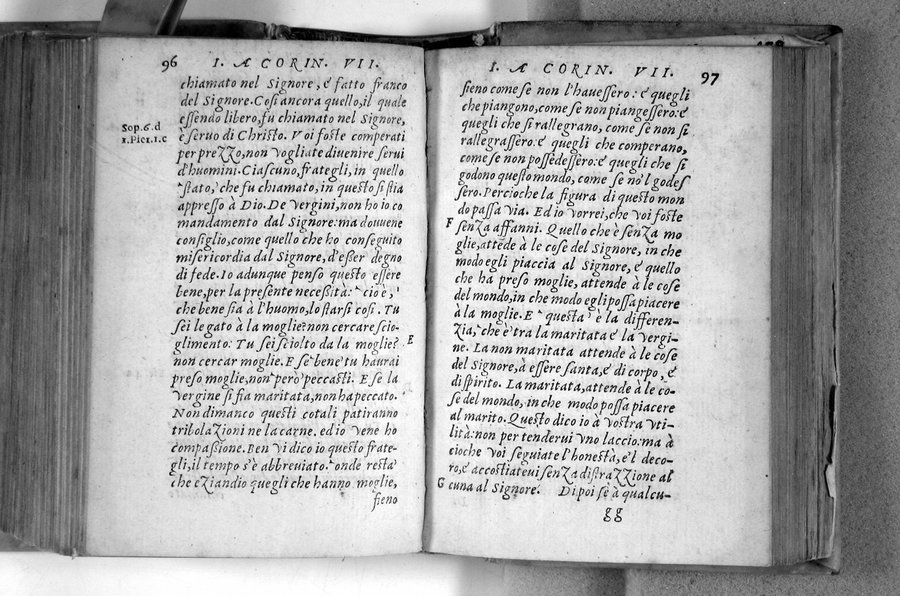 96 I. A CORIN. VII.
chiamato nel Signore, é fatto franco
del Signore. Cosi ancora quello, il quale
essendo libero, fu chiamato nel Signore,
Sop. 6. d
è seruo di Christo. Voi foste comperati
1. Piet. 1. c
per prezzo, non vogliate diuenire serui
d'huomini. Ciascuno, frategli, in quello
stato, che fu chiamato, in questo si stia
appresso à Dio. De vergini, non ho io co
mandamento dal Signore: ma douuene
consiglio, come quello che ho conseguito
misericordia dal Signore, d'esser degno
di fede. Io adunque penso questo essere
bene, per la presente necessità: cio è,
che bene sia à l'huomo, lo starsi cosi. Tu
sei legato à la moglie? non cercare scio-
glimento. Tu sei sciolto da la moglie? E
non cercar moglie. E se bene tu haurai
preso moglie, non però peccasti. E se la
vergine si fia maritata, non ha peccato.
Non dimanco questi cotali patiranno
tribolazioni ne la carne. ed io vene ho
compassione. Ben vi dico io questo frate-
gli, il tempo s'è abbreuiato. onde resta
che eziandio quegli che hanno moglie,
sieno
I. A CORIN. VII. 97
sieno come se non l'hauessero: é quegli
che piangono, come se non piangessero: é
quegli che si rallegrano, come se non si
rallegrassero: é quegli che comperano,
come se non possedessero: é quegli che si
godono questo mondo, come se no'l godes
sero. Percioche la figura di questo mon
do passa via. Ed io vorrei, che voi foste
F senza affanni. Quello che è senza mo
glie, attēde à le cose del Signore, in che
modo egli piaccia al Signore, é quello
che ha preso moglie, attende à le cose
del mondo, in che modo egli possa piacere
à la moglie. E questa è la differen-
zia, che è tra la maritata é la vergi-
ne. La non maritata attende à le cose
del Signore, à essere santa, é di corpo, é
di spirito. La maritata, attende à le co-
se del mondo, in che modo possa piacere
al marito. Questo dico io à vostra vti-
lità: non per tenderui vno laccio: ma à
cioche voi seguiate l'honestà, e'l deco-
ro, é accostiateui senza distrazzione al
G cuna al Signore. Dipoi sè à qualcu-
gg